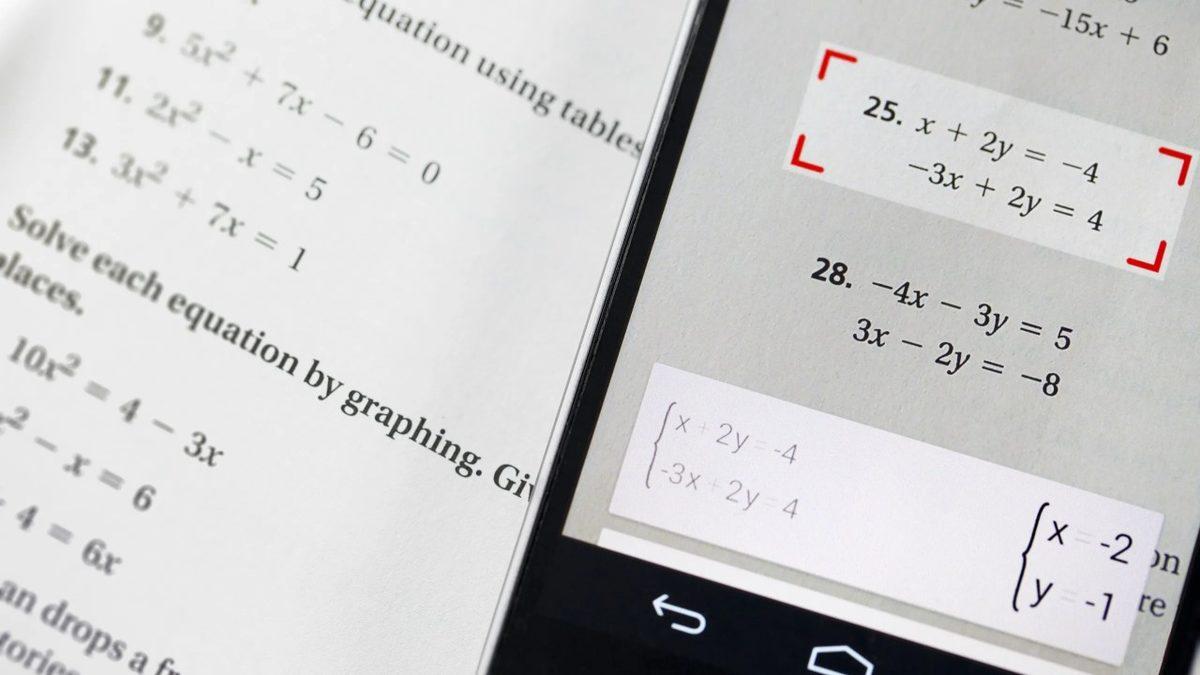 equation using tables
9. 5x² + 7x − 6 = 0
11. 2x² − x = 5
13. 3x² + 7x = 1
Solve each equation by graphing.
places.
10x² = 4 − 3x
− x = 6
4 = 6x
drops a
= −15x + 6
25. x + 2y = −4
−3x + 2y = 4
28. −4x − 3y = 5
3x − 2y = −8
x + 2y = -4
-3x + 2y = 4
x = -2
y = -1
on
re